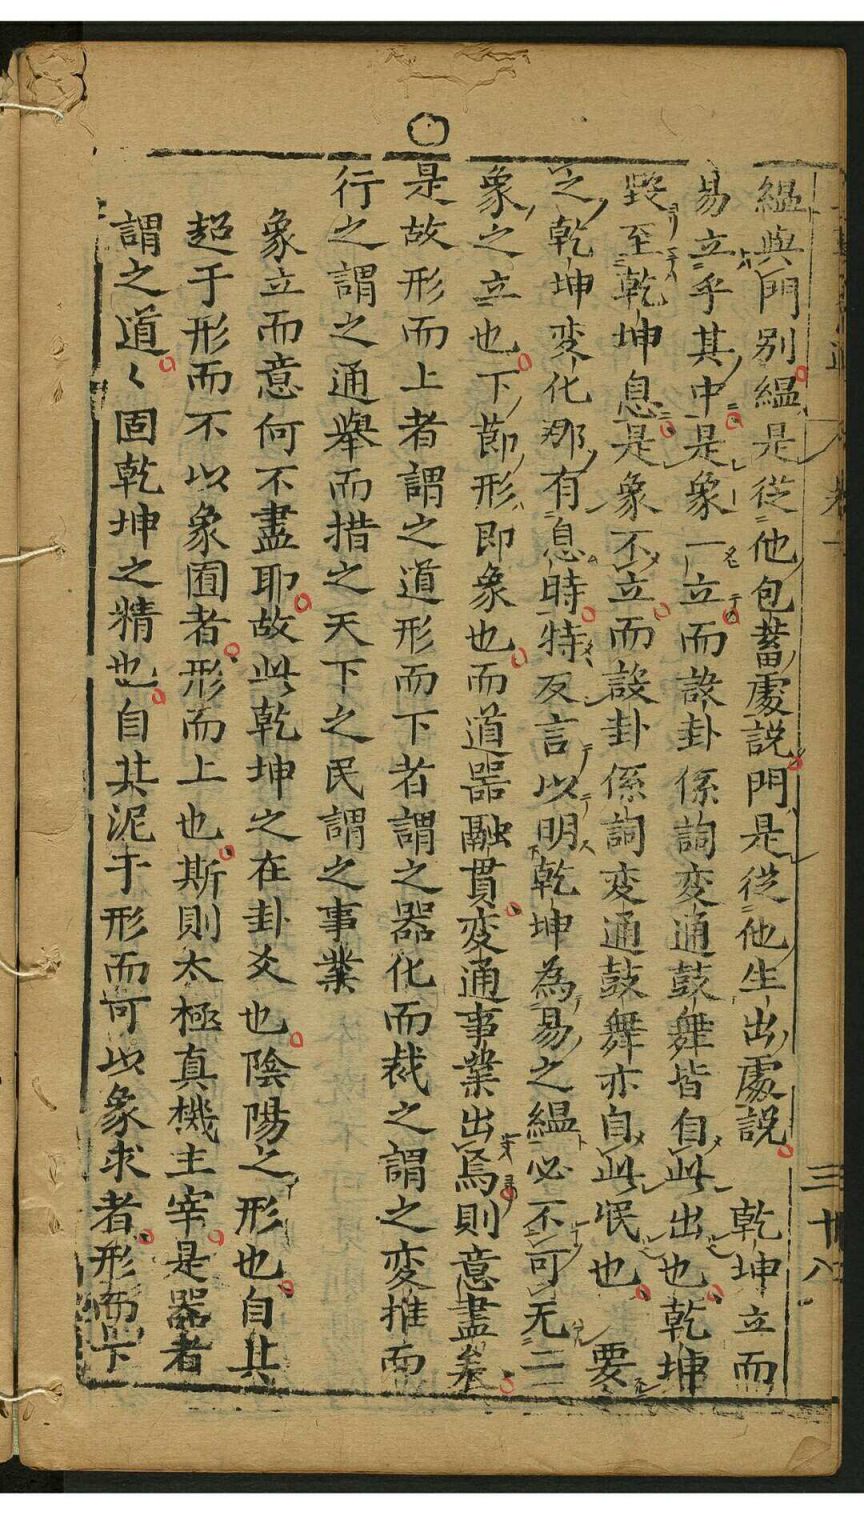 縕與門別縕是從他包蓄處說門是從他生出處說　乾坤立而
易立乎其中是象一立而設卦係詞変通鼓舞皆自此出也乾坤
毀至乾坤息是象不立而設卦係詞変通鼓舞亦自此泯也　要
之乾坤変化那有息時特反言以明乾坤為易之縕必不可无二
象之立也下節形即象也而道器融貫変通事業出焉則意盡矣
是故形而上者謂之道形而下者謂之器化而裁之謂之変推而
行之謂之通舉而措之天下之民謂之事業
象立而意何不盡耶故此乾坤之在卦爻也陰陽之形也自其
超于形而不以象囿者形而上也斯則太極真機主宰是器者
謂之道〻固乾坤之精也自其泥于形而可以象求者形而下
三十八